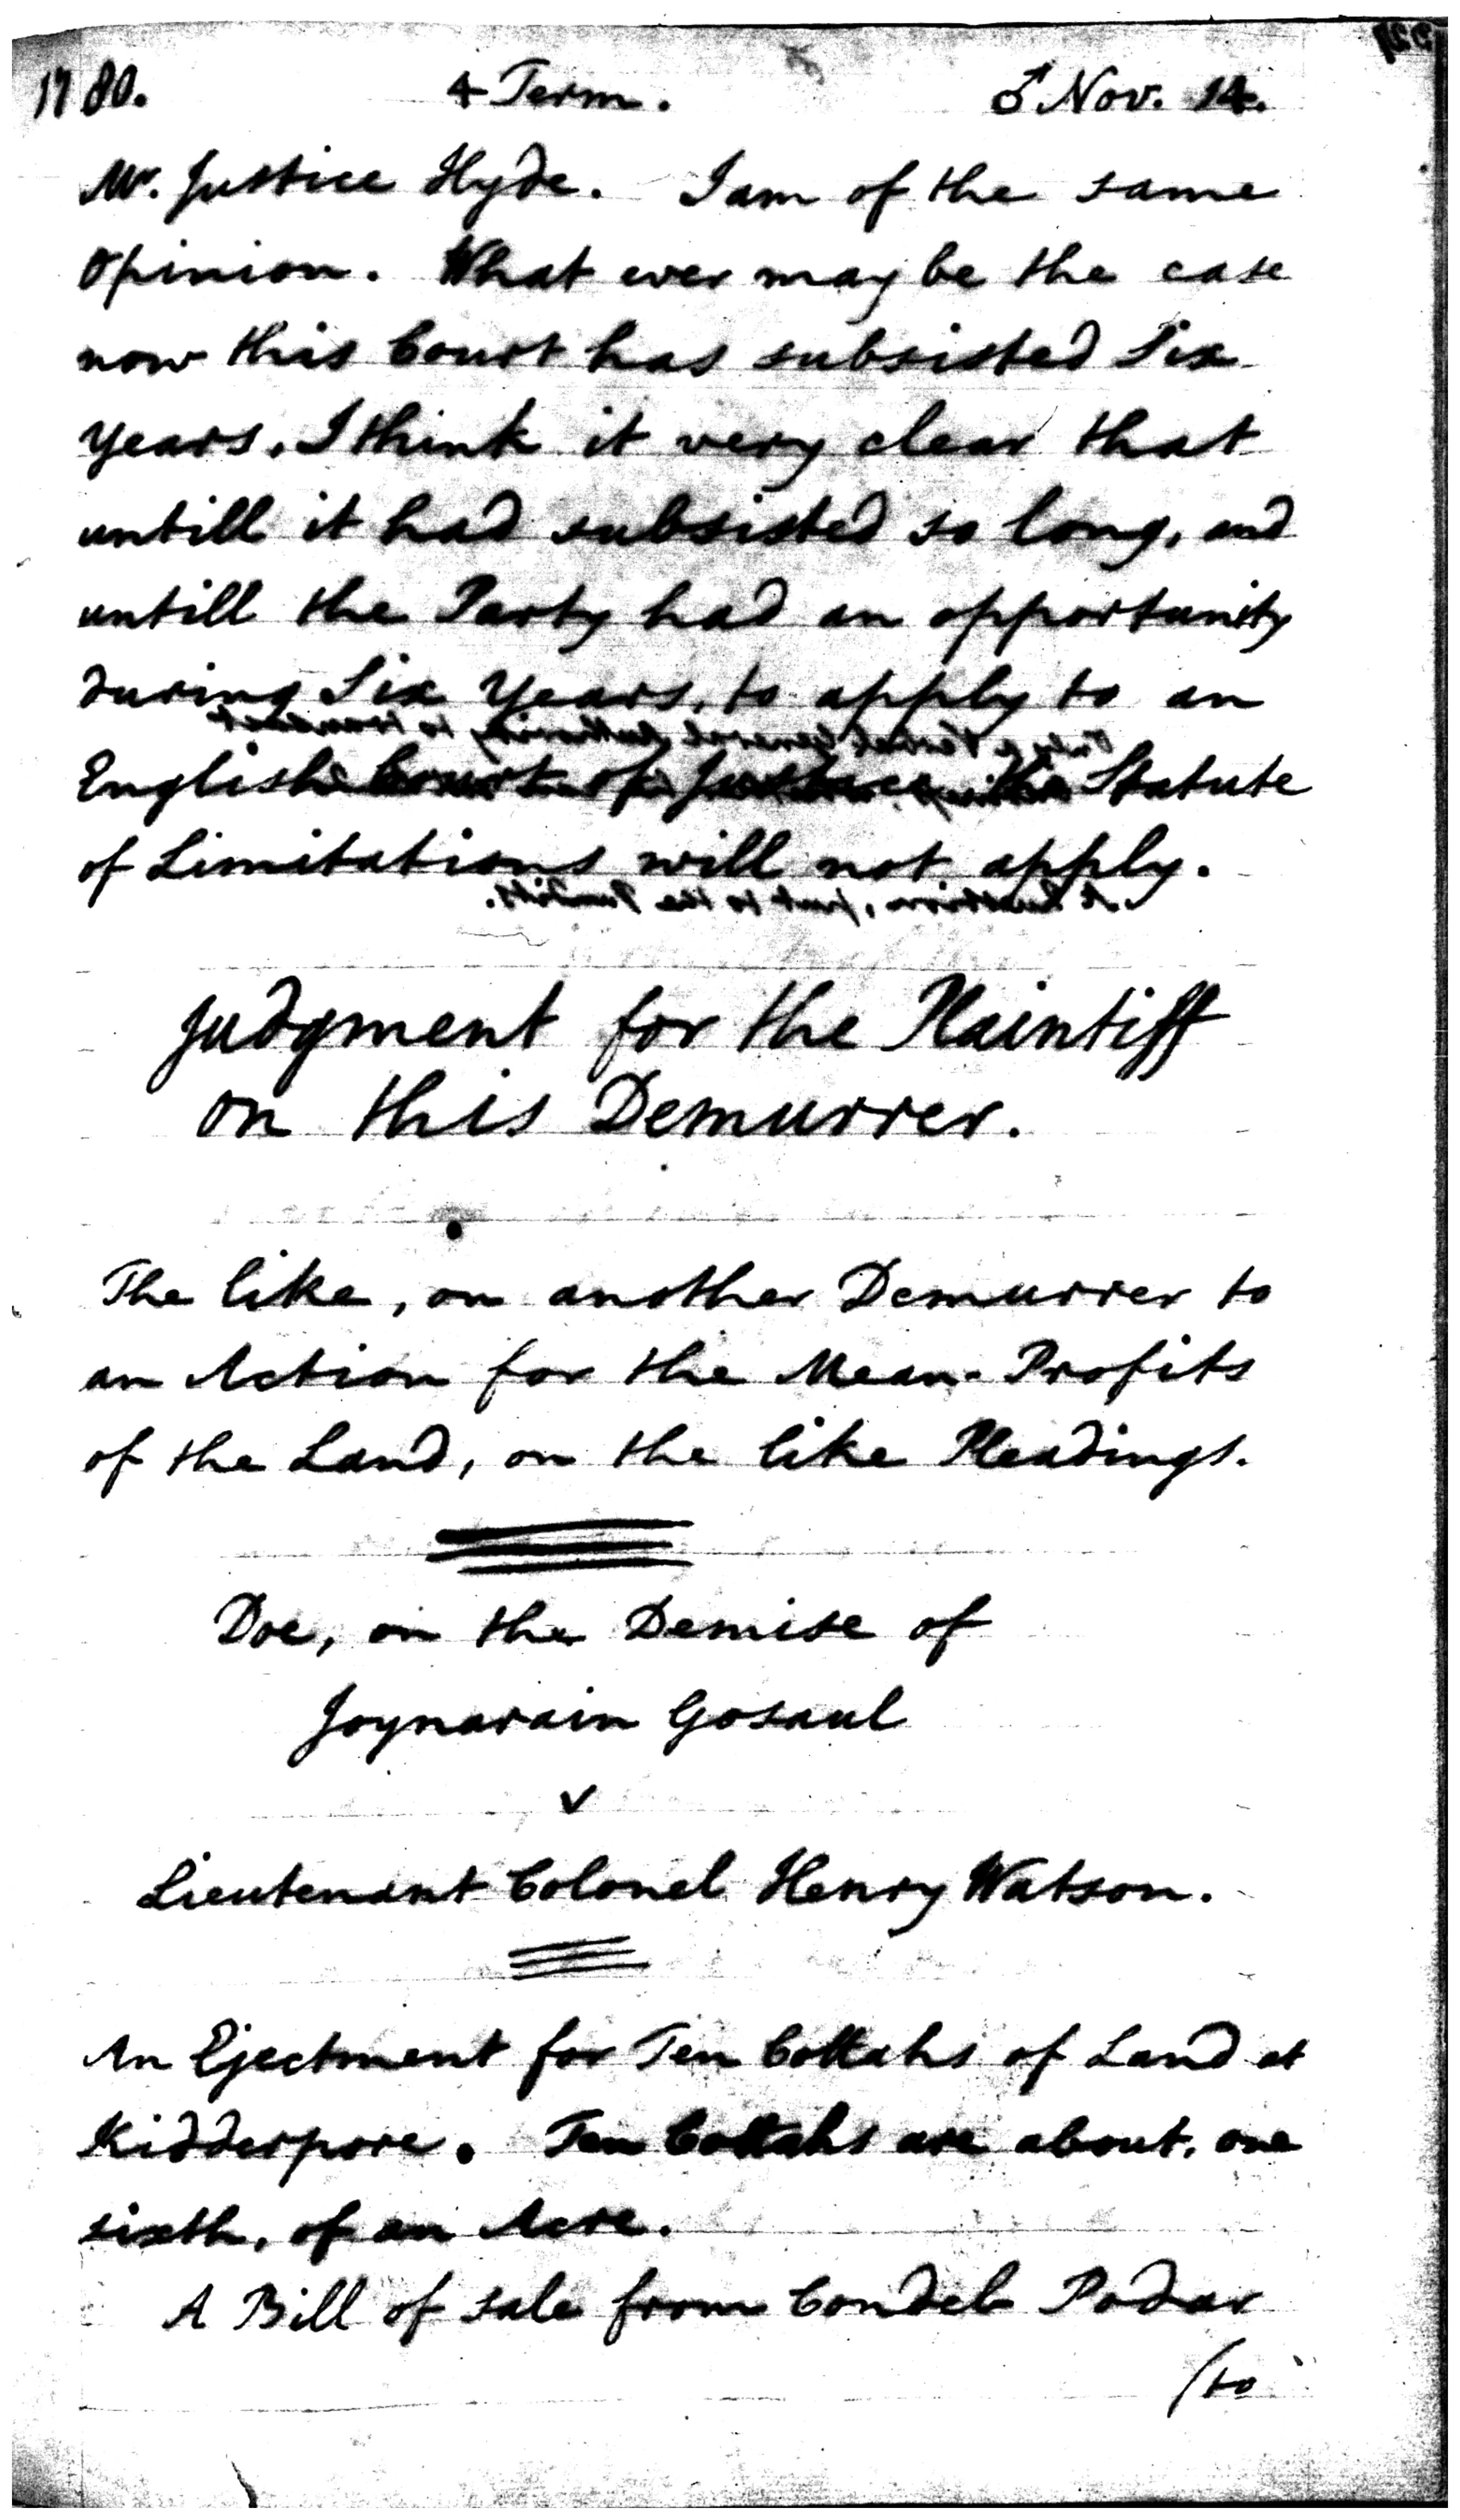 1780. 4 Term. ♂ Nov. 14.
Mr. Justice Hyde. I am of the same
Opinion. What ever may be the case
now this Court has subsisted Six
Years, I think it very clear that
untill it had subsisted so long, and
untill the Party had an opportunity
during Six Years, to apply to an
English Court of Justice the Statute
of Limitations will not apply.
Judgment for the Plaintiff
on this Demurrer.
The like, on another Demurrer to
an Action for the Mean Profits
of the Land, on the like Pleadings.
Doe, on the Demise of
Joynarain Gosaul
v
Lieutenant Colonel Henry Watson.
An Ejectment for Ten Cottahs of Land at
Kidderpore. Ten Cottahs are about, one
sixth, of an Acre.
A Bill of sale from Condeb Podar
(to